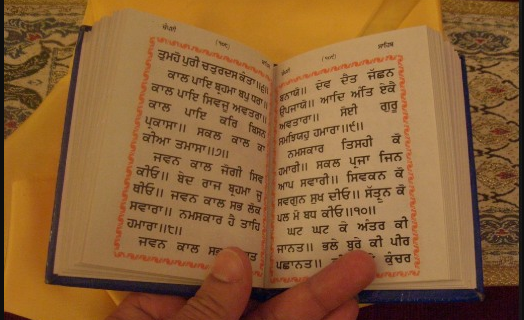 ਚੌਪਈ (੧੫੯) ਸਾਹਿਬ
ਤੁਮਹੋ ਪੁਰੀ ਚਤੁਰਦਸ ਕੰਤਾ॥੬॥
ਕਾਲ ਪਾਇ ਬ੍ਰਹਮਾ ਬਪੁ ਧਰਾ॥
ਕਾਲ ਪਾਇ ਸਿਵਜੂ ਅਵਤਰਾ॥
ਕਾਲ ਪਾਇ ਕਰਿ ਬਿਸਨ
ਪ੍ਰਕਾਸਾ॥ ਸਕਲ ਕਾਲ ਕਾ
ਕੀਆ ਤਮਾਸਾ॥੭॥
ਜਵਨ ਕਾਲ ਜੋਗੀ ਸਿਵ
ਕੀਓ॥ ਬੇਦ ਰਾਜ ਬ੍ਰਹਮਾ ਜੂ
ਥੀਓ॥ ਜਵਨ ਕਾਲ ਸਭ ਲੋਕ
ਸਵਾਰਾ॥ ਨਮਸਕਾਰ ਹੈ ਤਾਹਿ
ਹਮਾਰਾ॥੮॥
ਜਵਨ ਕਾਲ ਸਭ
ਚੌਪਈ ਸਾਹਿਬ
ਬਨਾਯੋ॥ ਦੇਵ ਦੈਤ ਜੱਛਨ
ਉਪਜਾਯੋ॥ ਆਦਿ ਅੰਤਿ ਏਕੈ
ਅਵਤਾਰਾ॥ ਸੋਈ ਗੁਰੂ
ਸਮਝਿਯਹੁ ਹਮਾਰਾ॥੯॥
ਨਮਸਕਾਰ ਤਿਸਹੀ ਕੋ
ਹਮਾਰੀ॥ ਸਕਲ ਪ੍ਰਜਾ ਜਿਨ
ਆਪ ਸਵਾਰੀ॥ ਸਿਵਕਨ ਕੋ
ਸਵਗੁਨ ਸੁਖ ਦੀਓ॥ ਸੱਤ੍ਰੁਨ ਕੋ
ਪਲ ਮੋ ਬਧ ਕੀਓ॥੧੦॥
ਘਟ ਘਟ ਕੇ ਅੰਤਰ ਕੀ
ਜਾਨਤ॥ ਭਲੇ ਬੁਰੇ ਕੀ ਪੀਰ
ਪਛਾਨਤ॥ ਕੁੰਚਰ